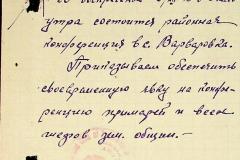 утра состоится районная
конференция в с. Варваровка.
Приказываем обеспечить
своевременную явку на конфе-
ренцию примарей и всех
зем. общин. —